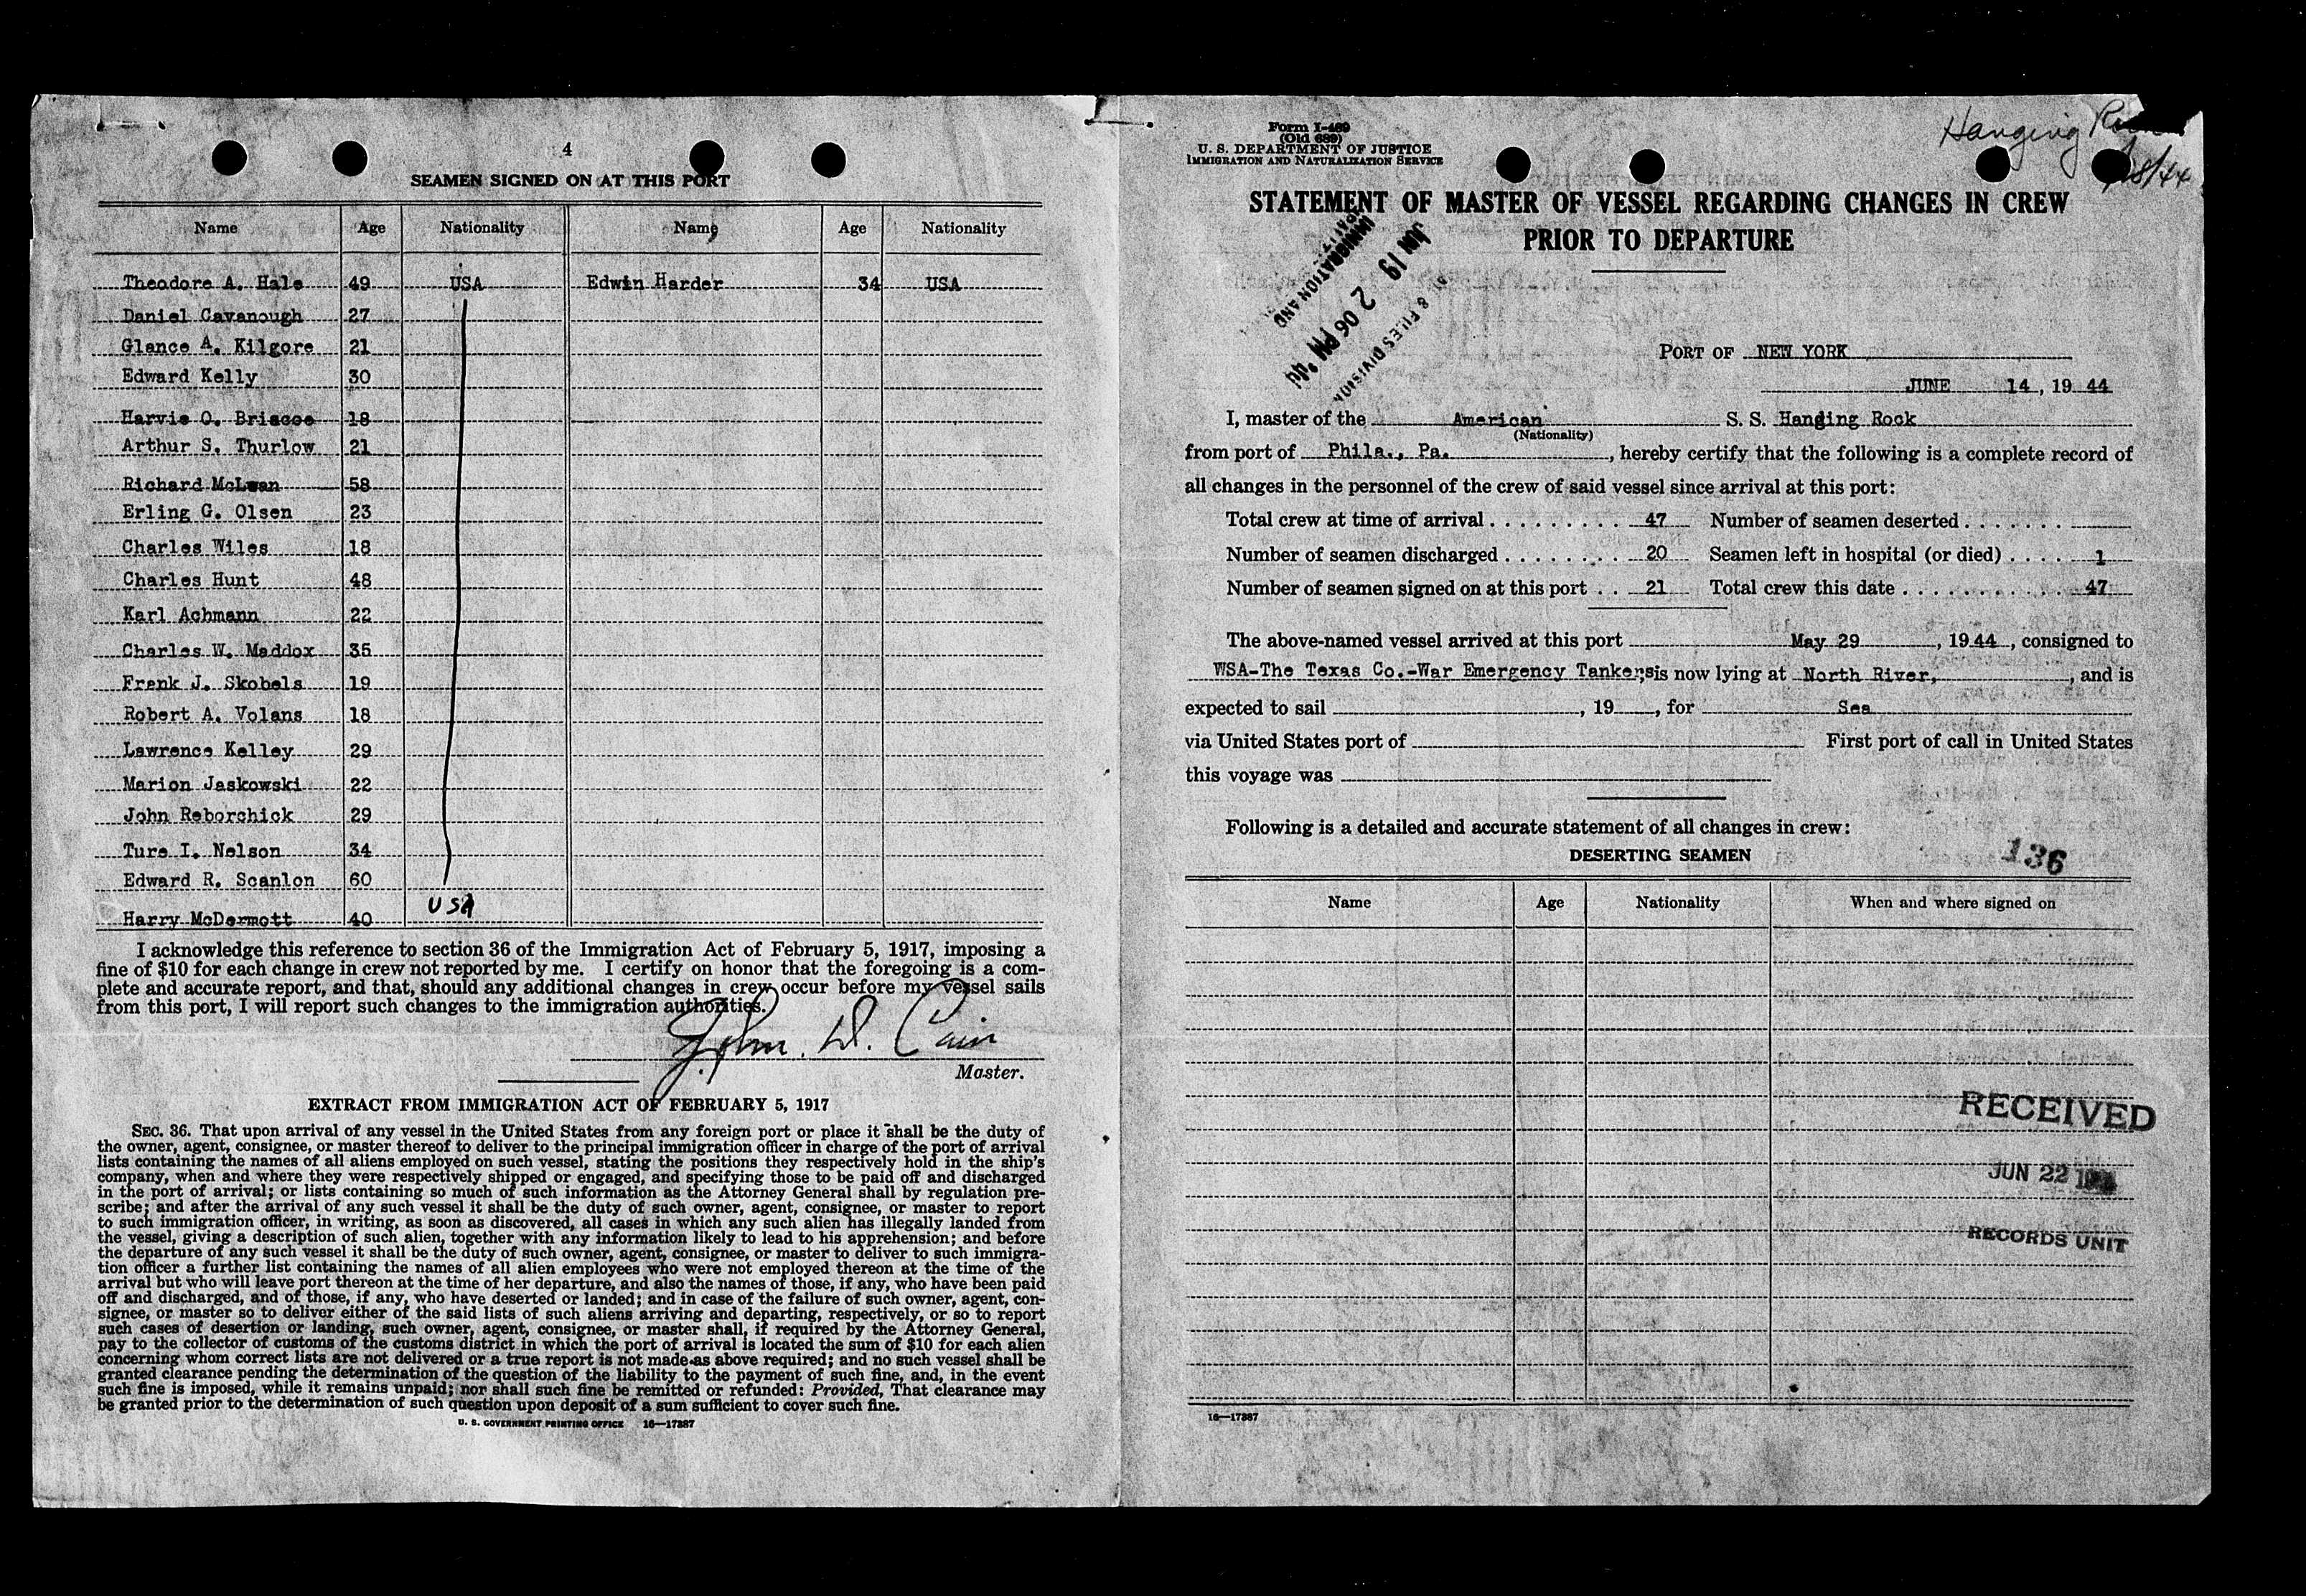 4
SEAMEN SIGNED ON AT THIS PORT
Name Age Nationality Name Age Nationality
Theodore A. Hale 49 USA Edwin Harder 34 USA
Daniel Cavanough 27
Glance A. Kilgore 21
Edward Kelly 30
Harvie O. Briscoe 18
Arthur S. Thurlow 21
Richard McLean 58
Erling G. Olsen 23
Charles Wiles 18
Charles Hunt 48
Karl Achmann 22
Charles W. Maddox 35
Frank J. Skobels 19
Robert A. Volans 18
Lawrence Kelley 29
Marion Jaskowski 22
John Reborchick 29
Ture I. Nelson 34
Edward R. Scanlon 60
Harry McDermott 40 USA
I acknowledge this reference to section 36 of the Immigration Act of February 5, 1917, imposing a
fine of $10 for each change in crew not reported by me. I certify on honor that the foregoing is a com-
plete and accurate report, and that, should any additional changes in crew occur before my vessel sails
from this port, I will report such changes to the immigration authorities.
John D. Cain
Master.
EXTRACT FROM IMMIGRATION ACT OF FEBRUARY 5, 1917
SEC. 36. That upon arrival of any vessel in the United States from any foreign port or place it shall be the duty of
the owner, agent, consignee, or master thereof to deliver to the principal immigration officer in charge of the port of arrival
lists containing the names of all aliens employed on such vessel, stating the positions they respectively hold in the ship's
company, when and where they were respectively shipped or engaged, and specifying those to be paid off and discharged
in the port of arrival; or lists containing so much of such information as the Attorney General shall by regulation pre-
scribe; and after the arrival of any such vessel it shall be the duty of such owner, agent, consignee, or master to report
to such immigration officer, in writing, as soon as discovered, all cases in which any such alien has illegally landed from
the vessel, giving a description of such alien, together with any information likely to lead to his apprehension; and before
the departure of any such vessel it shall be the duty of such owner, agent, consignee, or master to deliver to such immigra-
tion officer a further list containing the names of all alien employees who were not employed thereon at the time of the
arrival but who will leave port thereon at the time of her departure, and also the names of those, if any, who have been paid
off and discharged, and of those, if any, who have deserted or landed; and in case of the failure of such owner, agent, con-
signee, or master so to deliver either of the said lists of such aliens arriving and departing, respectively, or so to report
such cases of desertion or landing, such owner, agent, consignee, or master shall, if required by the Attorney General,
pay to the collector of customs of the customs district in which the port of arrival is located the sum of $10 for each alien
concerning whom correct lists are not delivered or a true report is not made as above required; and no such vessel shall be
granted clearance pending the determination of the question of the liability to the payment of such fine, and, in the event
such fine is imposed, while it remains unpaid; nor shall such fine be remitted or refunded: Provided, That clearance may
be granted prior to the determination of such question upon deposit of a sum sufficient to cover such fine.
U. S. GOVERNMENT PRINTING OFFICE 16—17387
Form I-489
(Old 689)
U. S. DEPARTMENT OF JUSTICE
IMMIGRATION AND NATURALIZATION SERVICE
Hanging
STATEMENT OF MASTER OF VESSEL REGARDING CHANGES IN CREW
PRIOR TO DEPARTURE
IMMIGRATION AND
JUN 19 2 06 PM '44
& FILES DIVISION
PORT OF NEW YORK
JUNE 14, 19 44
I, master of the American S. S. Hanging Rock
(Nationality)
from port of Phila., Pa. , hereby certify that the following is a complete record of
all changes in the personnel of the crew of said vessel since arrival at this port:
Total crew at time of arrival . . . . . . . . . 47 Number of seamen deserted . . . . . . .
Number of seamen discharged . . . . . . . . 20 Seamen left in hospital (or died) . . . . 1
Number of seamen signed on at this port . . 21 Total crew this date . . . . . . . . . . . . 47
The above-named vessel arrived at this port May 29 , 19 44 , consigned to
WSA-The Texas Co.-War Emergency Tankers, is now lying at North River, , and is
expected to sail , 19 , for Sea
via United States port of First port of call in United States
this voyage was
Following is a detailed and accurate statement of all changes in crew:
DESERTING SEAMEN
136
Name Age Nationality When and where signed on
RECEIVED
JUN 22
RECORDS UNIT
16—17387